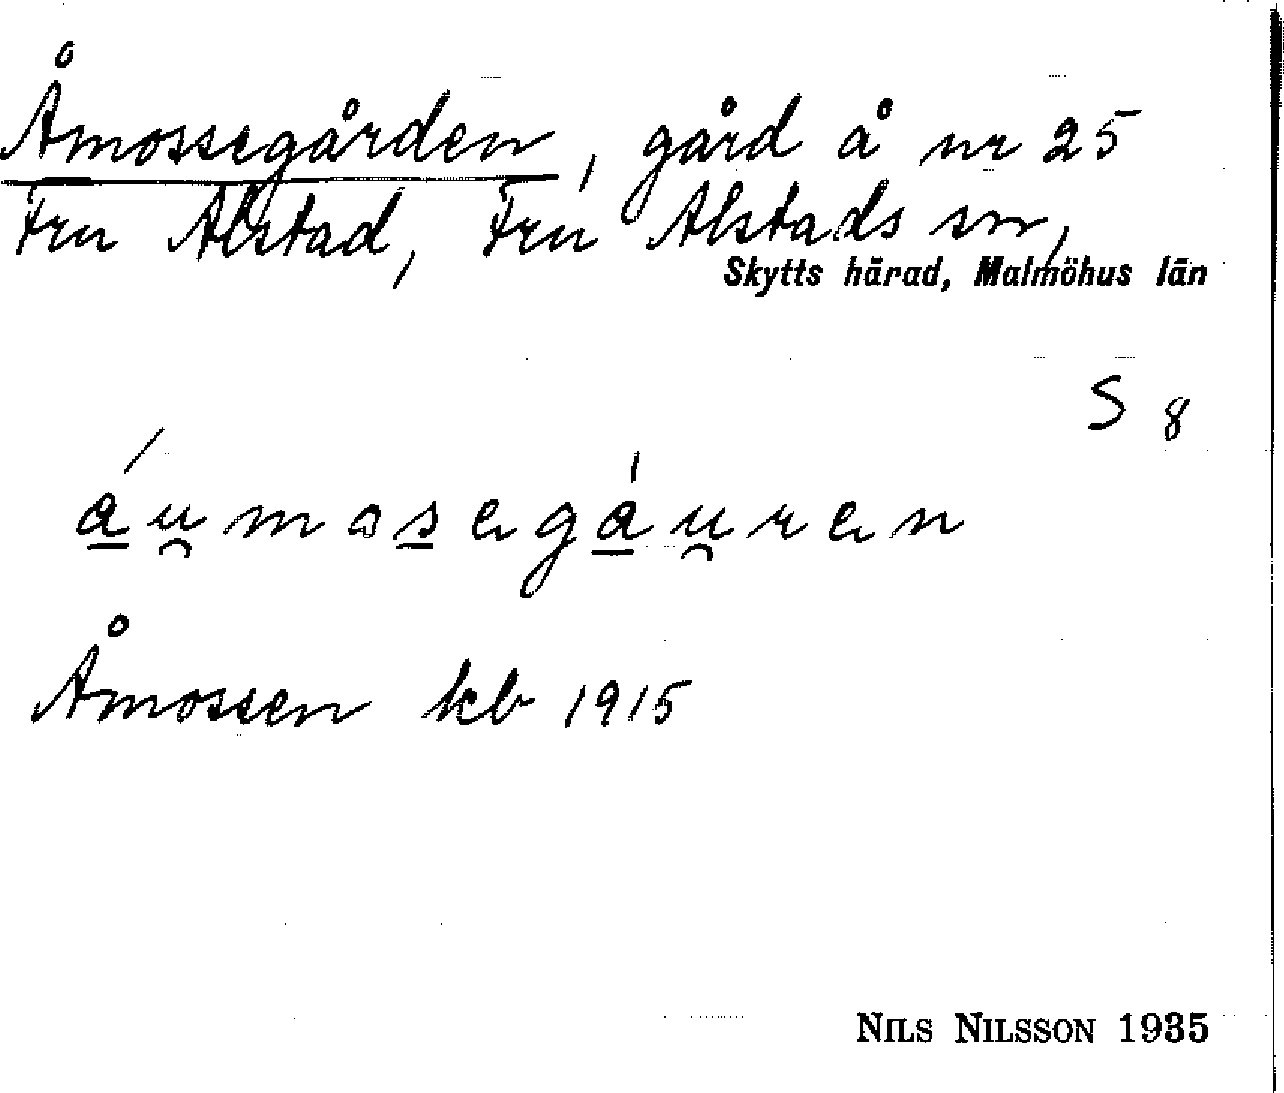 Åmossegården, gård å nr 25
Fru Alstad, Fru Alstads sn,
Skytts härad, Malmöhus län
S 8
a̲u̯mos̲ega̲u̯ren
Åmossen kb 1915
NILS NILSSON 1935